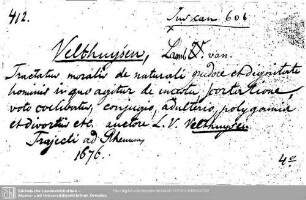 412.
Jus can. 606
Velthuysen, Lamb. van.
Tractatus moralis de naturali pudore et dignitate
hominis in quo agitur de incestu, scortatione,
voto coelibatus, conjugio, adulterio, polygamia
et divortiis etc. auctore L. V. Velthuysen
Trajecti ad Rhenum,
1676.
4°
Sächsische Landesbibliothek -